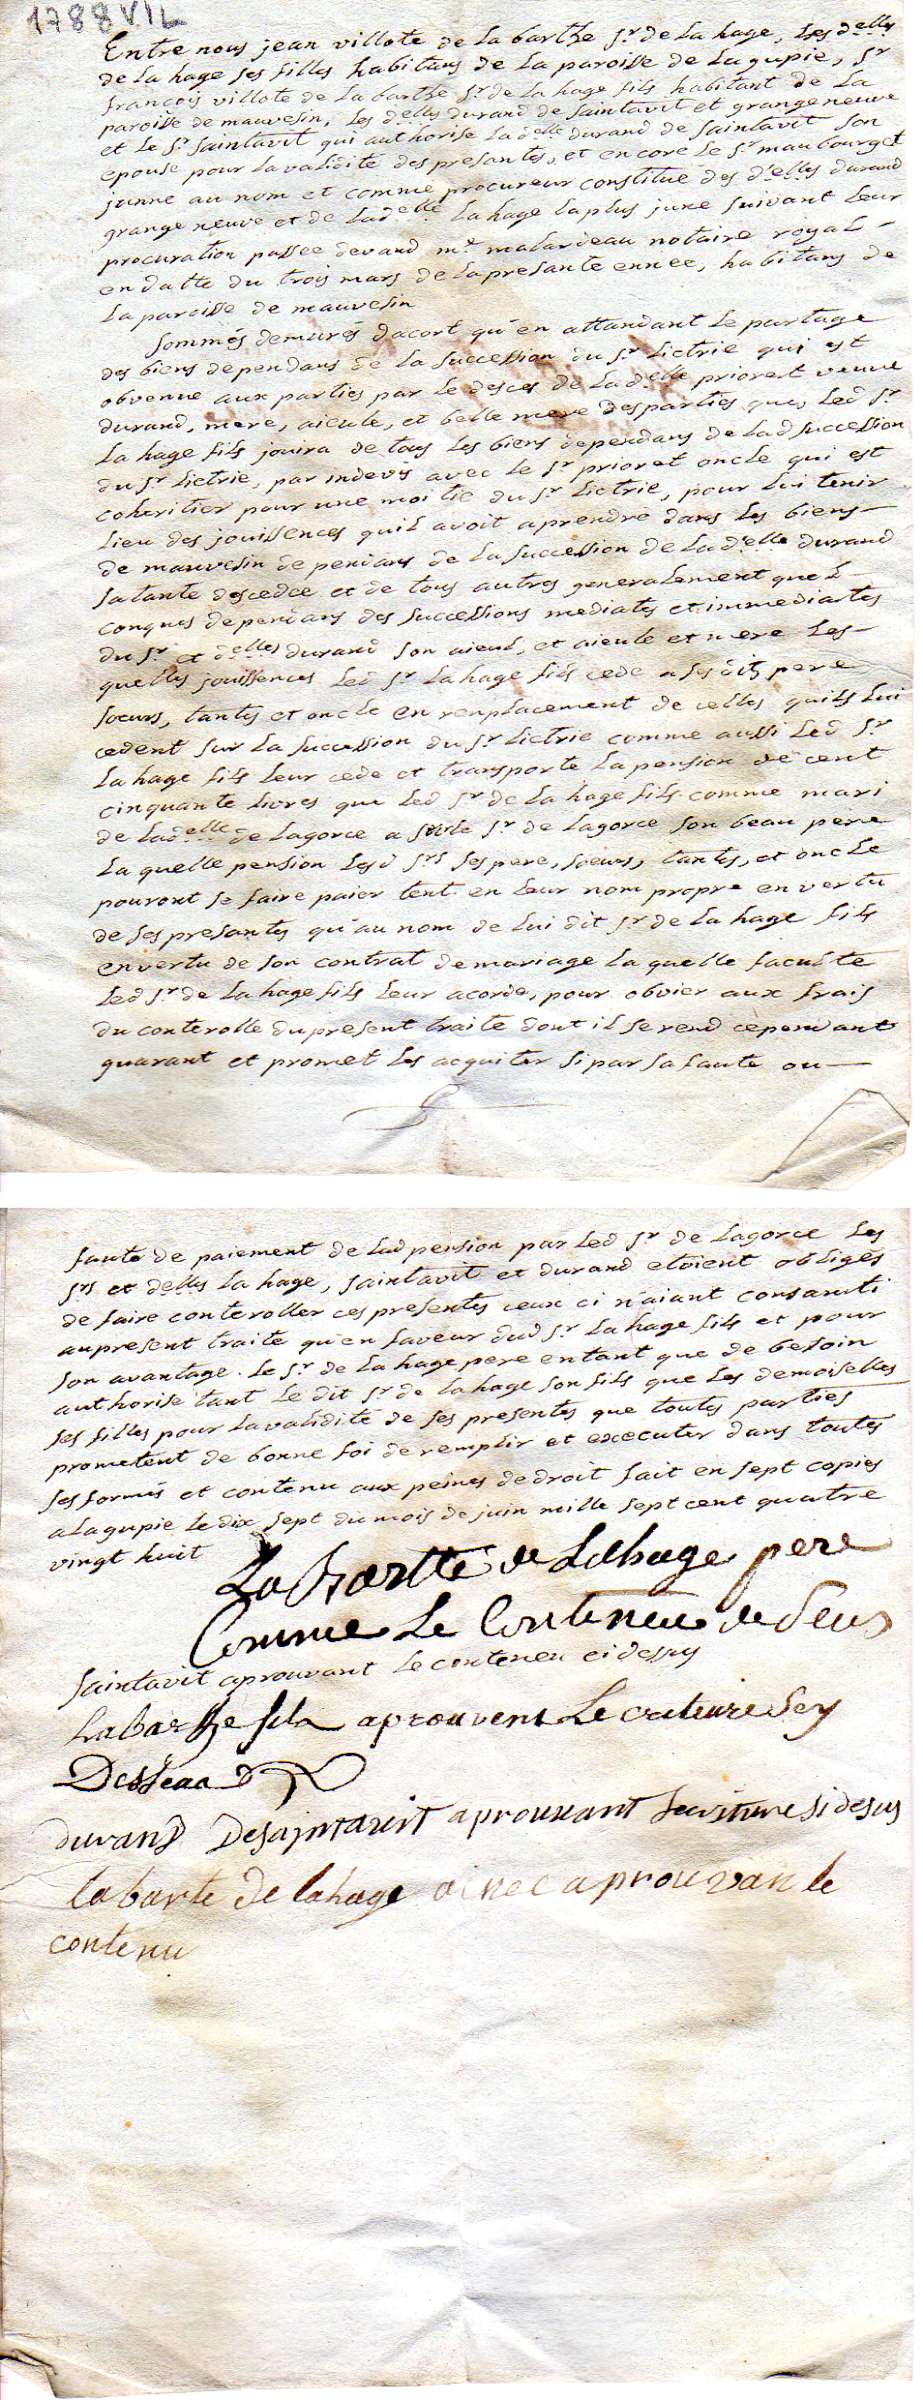 1788 VIL
Entre nous jean villote de la barthe sr. de la hage, les delles
de la hage ses filles habitans de la paroisse de lagupie, sr
francois villote de la barthe sr. de la hage fils habitant de la
paroisse de mauvesin, les delles durand de saintavit et grangeneuve
et le sr. saintavit qui authorise la delle durand de saintavit son
epouse pour la validité des presantes, et encore le sr. maubourget
junne au nom et comme procureur constitue des d'elles durand
grange neuve et de la delle la hage la plus june suivant leur
procuration passée devand me. malardeau notaire royal -
en datte du trois mars de la presante ennee, habitans de
la paroisse de mauvesin
sommés demurés dacort qu'en attandant le partage
des biens dependans de la succession du sr. lietrie qui est
obvenue aux parties par le desces de la delle priorest veuve
durand, mere, aieule, et belle mere des parties que, led sr.
la hage fils jouira de tous les biens dependans de lad succession
du sr. lietrie, par indevis avec le sr. prioret oncle qui est
coheritier pour une moitie du sr. lietrie, pour lui tenir
lieu des jouissences quil avoit a prendre dans les biens -
de mauvesin dependans de la succession de la delle durand
sa tante descedee et de tous autres generalement quel -
conques dependans des successions mediates et immediates
du sr. et delles durand son aieul, et aieule et mere les -
quelles jouissences led sr. la hage fils cede a ses dits pere
soeurs, tantes et oncle en renplacement de celles quils lui
cedent sur la succession du sr. lietrie comme aussi led sr.
la hage fils leur cede et transporte la pension de cent
cinquante livres que led sr. de la hage fils comme mari
de la delle de lagorce a sur le sr. de lagorce son beau pere
la quelle pension lesd srs ses pere, soeurs, tantes, et oncle
pouront se faire paier tent en leur nom propre en vertu
de ses presantes qu'au nom de lui dit sr. de la hage fils
en vertu de son contrat de mariage la quelle faculte
led sr. de la hage fils leur acorde, pour obvier aux frais
du conterolle du present traite dont il se rend cependant
guarant et promet les acquiter si par sa faute ou -
faute de paiement de lad pension par led sr. de lagorce les
srs et delles la hage, saintavit et durand etoient obliges
de faire conteroller ces presentes ceux ci n'aiant consanti
au present traite qu'en faveur dud sr. la hage fils et pour
son avantage. le sr. de la hage pere entant que de besoin
authorise tant le dit sr. de la hage son fils que les demoiselles
ses filles pour la validité de ses presentes que toutes parties
prometent de bonne foi de remplir et executer dans toutes
ses formes et contenu aux peines de droit fait en sept copies
a lagupie le dix sept du mois de juin mille sept cent quatre
vingt huit
La Bartte de Lahage pere
Comme Le Conteneu de Seus
saintavit aprouvant le conteneu ci dessus
Labarthe fils aprouvent
durand Desaintavit aprouvant si desus
la barte de lahage ainee aprouvan le
contenu